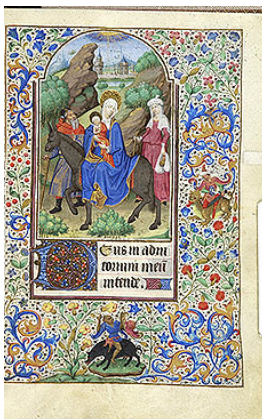 Deus in adiu
torium meu̅
intende.